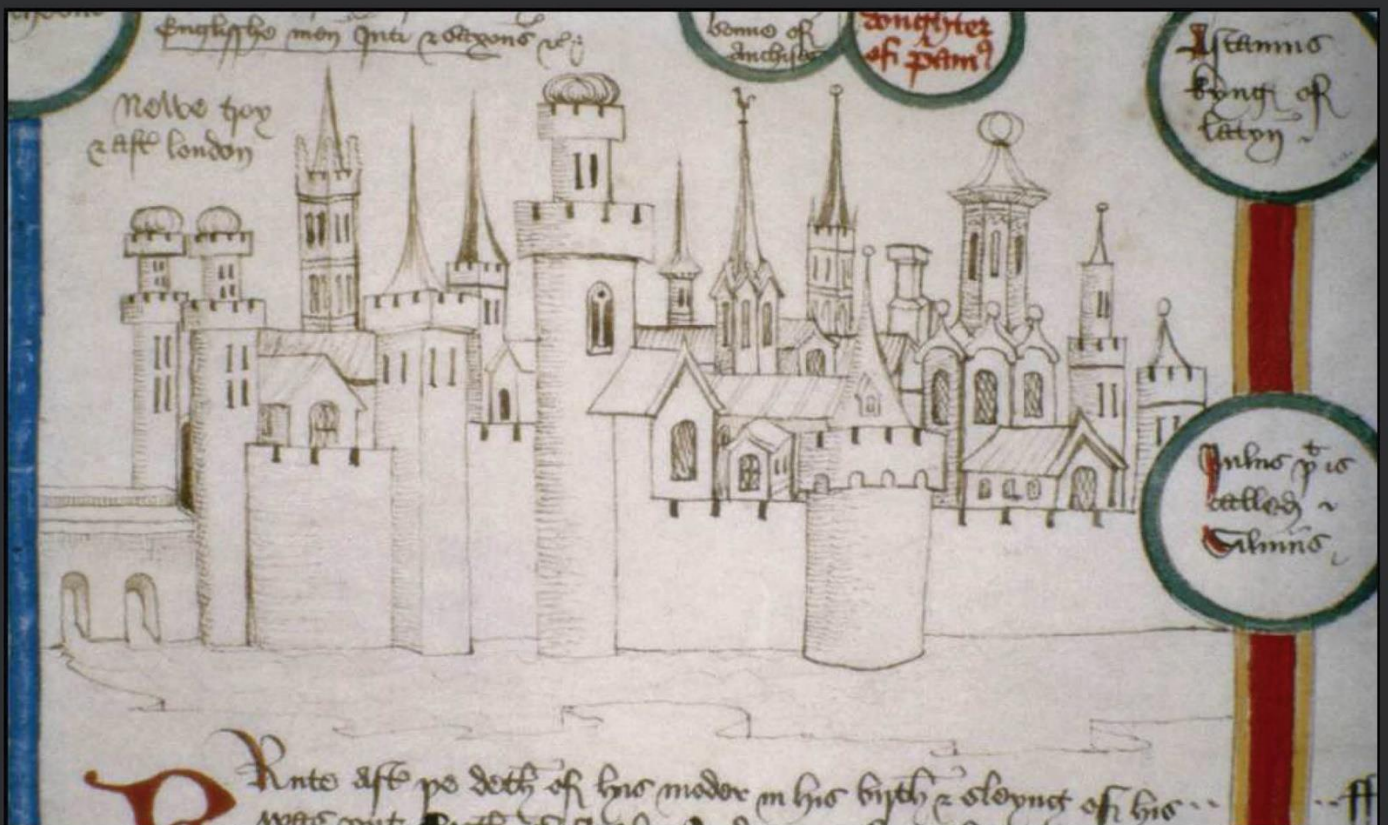 Englisshe men Juti & Saxons
sone of
Anchises
doughter
of Priamꝰ
Astanius
kyng of
latyn
Newe troy
& aft london
Iulus þt is
called
Siluius
BRute aft þe deth of his moder in his birth & sleyng of his
was